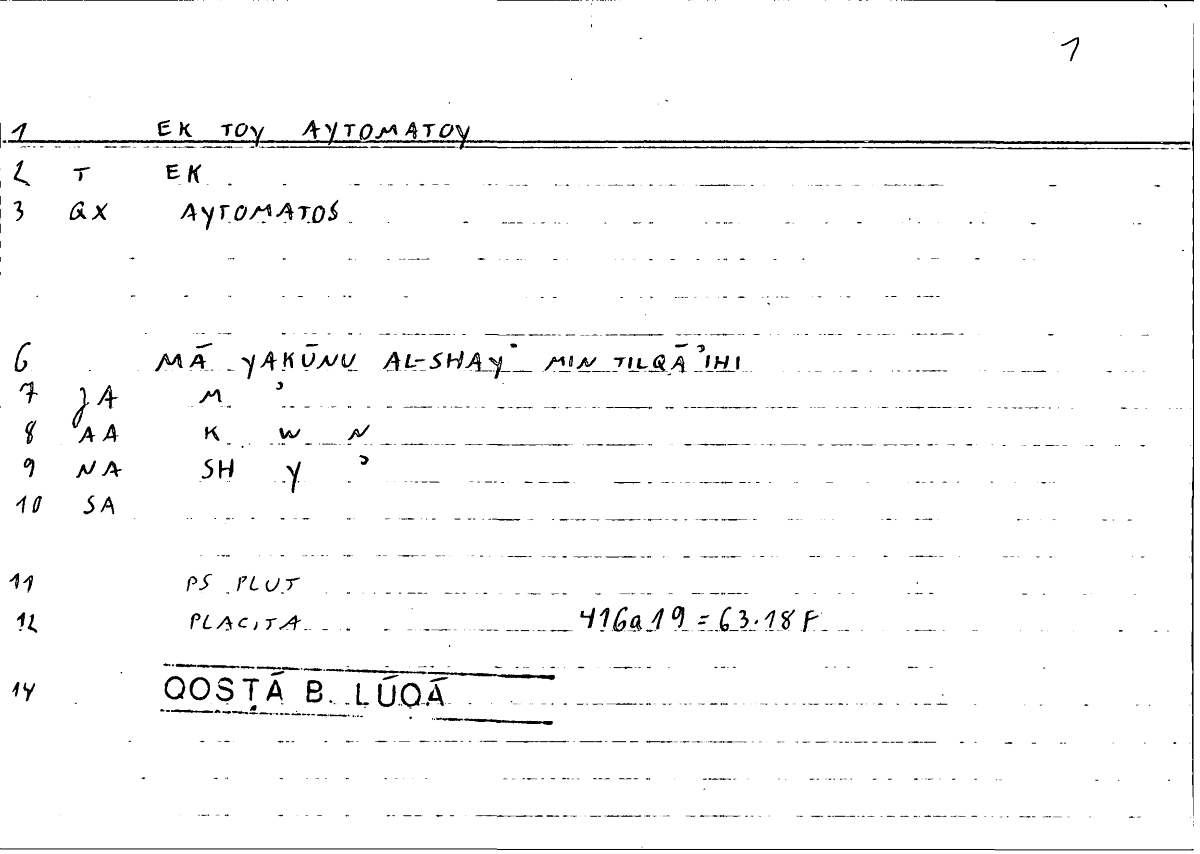 1
1 EK TOY AYTOMATOY
2 T EK
3 QX AYTOMATOS
6 MĀ YAKŪNU AL-SHAYʾ MIN TILQĀʾIHI
7 JA M ʾ
8 AA K W N
9 NA SH Y ʾ
10 SA
11 PS PLUT
12 PLACITA 416a19 = 63.18 F
14 QOSṬĀ B. LŪQĀ